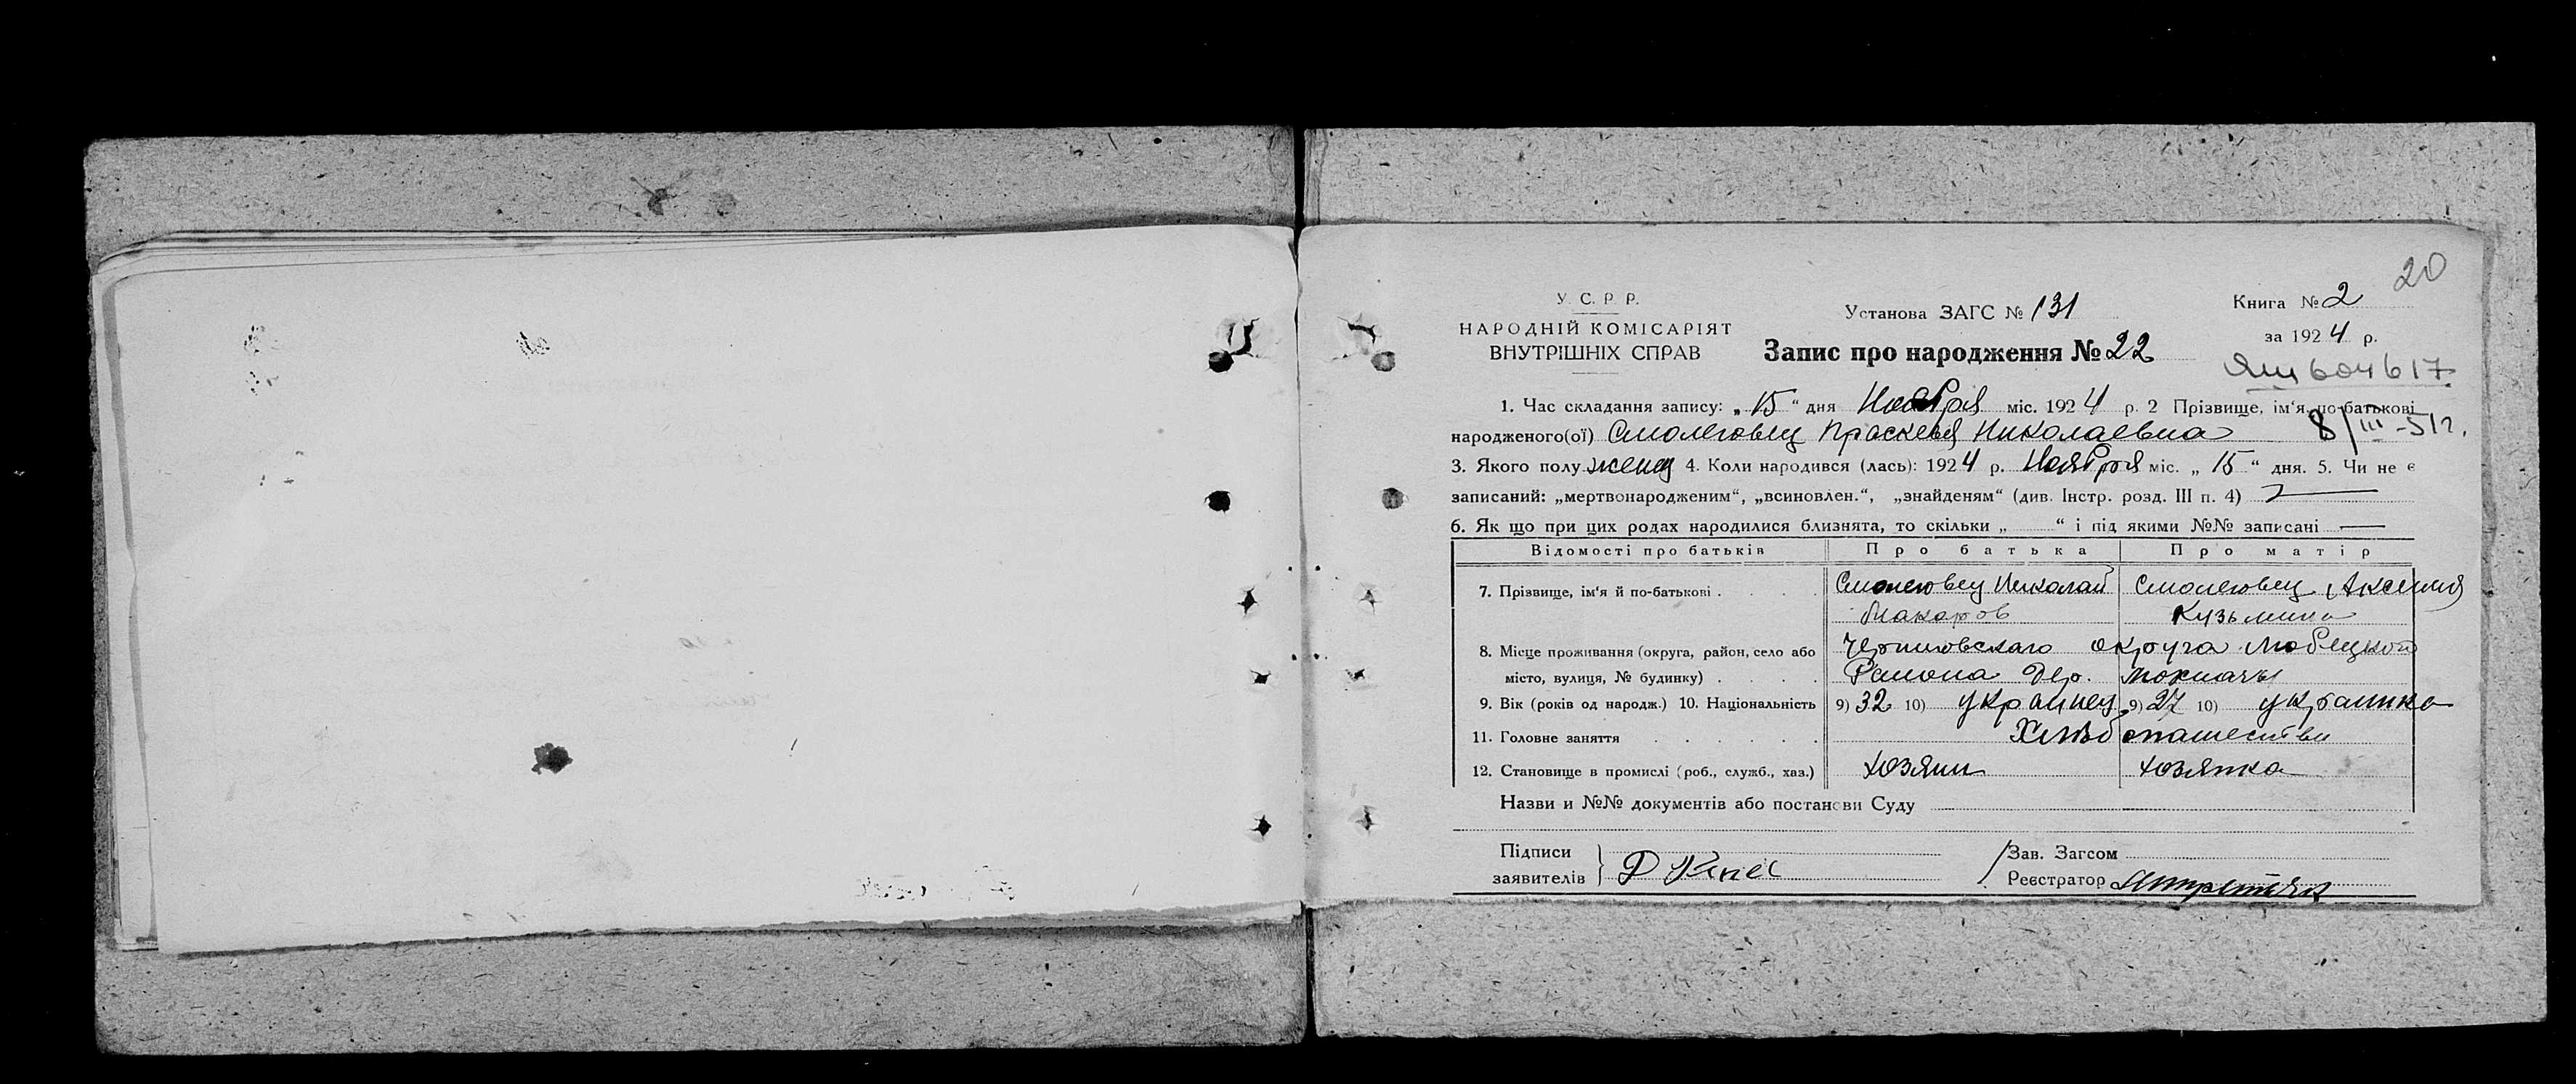 20
У. С. Р. Р.
НАРОДНІЙ КОМІСАРІЯТ
ВНУТРІШНІХ СПРАВ
Установа ЗАГС № 131
Запис про народження № 22
Книга № 2
за 1924 р.
ЯШ 604617
8/III-51г.
1. Час складання запису: „15“ дня Ноября міс. 1924 р. 2 Прізвище, ім‘я, по-батькові
народженого(ої) Смолеговец Праскевья Николаевна
3. Якого полу женщ 4. Коли народився (лась): 1924 р. Ноября міс. „15“ дня. 5. Чи не є
записаний: „мертвонародженим“, „всиновлен.“, „знайденям“ (див. Інстр. розд. III п. 4) —
6. Як що при цих родах народилися близнята, то скільки „ “ і під якими №№ записані —
Відомості про батьків Про батька Про матір
7. Прізвище, ім‘я й по-батькові . . . . Смолеговец Николай Смолеговец Аксения
Макаров Кузьмина
8. Місце проживання (округа, район, село або Черниговскаго округа Любецкой
місто, вулиця, № будинку) . . . . Района Дер. Мокначы
9. Вік (років од народж.) 10. Національність 9) 32 10) украинец 9) 27 10) украинка
11. Головне заняття . . . . . . Хлѣбопашестви
12. Становище в промислі (роб., служб., хаз.) хозяин хозяйка
Назви и №№ документів або постанови Суду
Підписи
заявителів
Зав. Загсом
Реєстратор